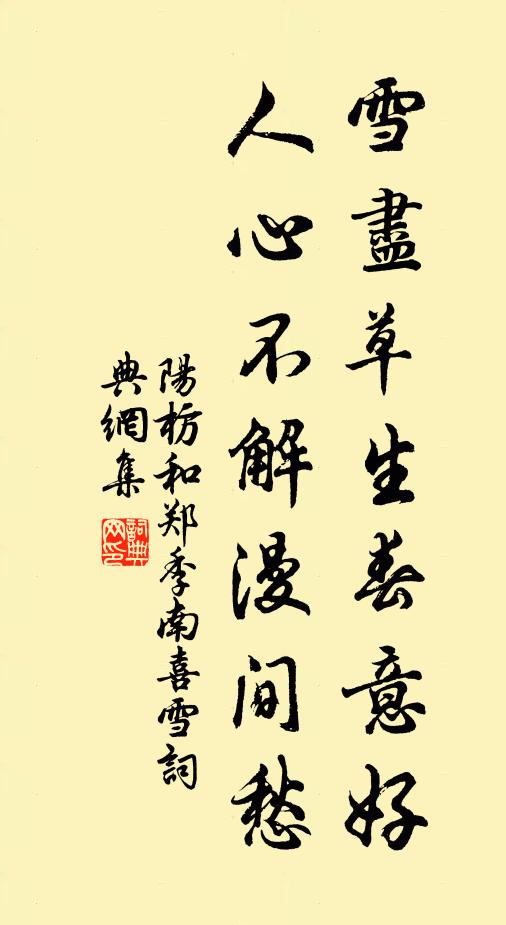 雪盡草生春意好
人心不解漫间愁
陽枋和郑季南喜雪詞
典網集
詞典网印